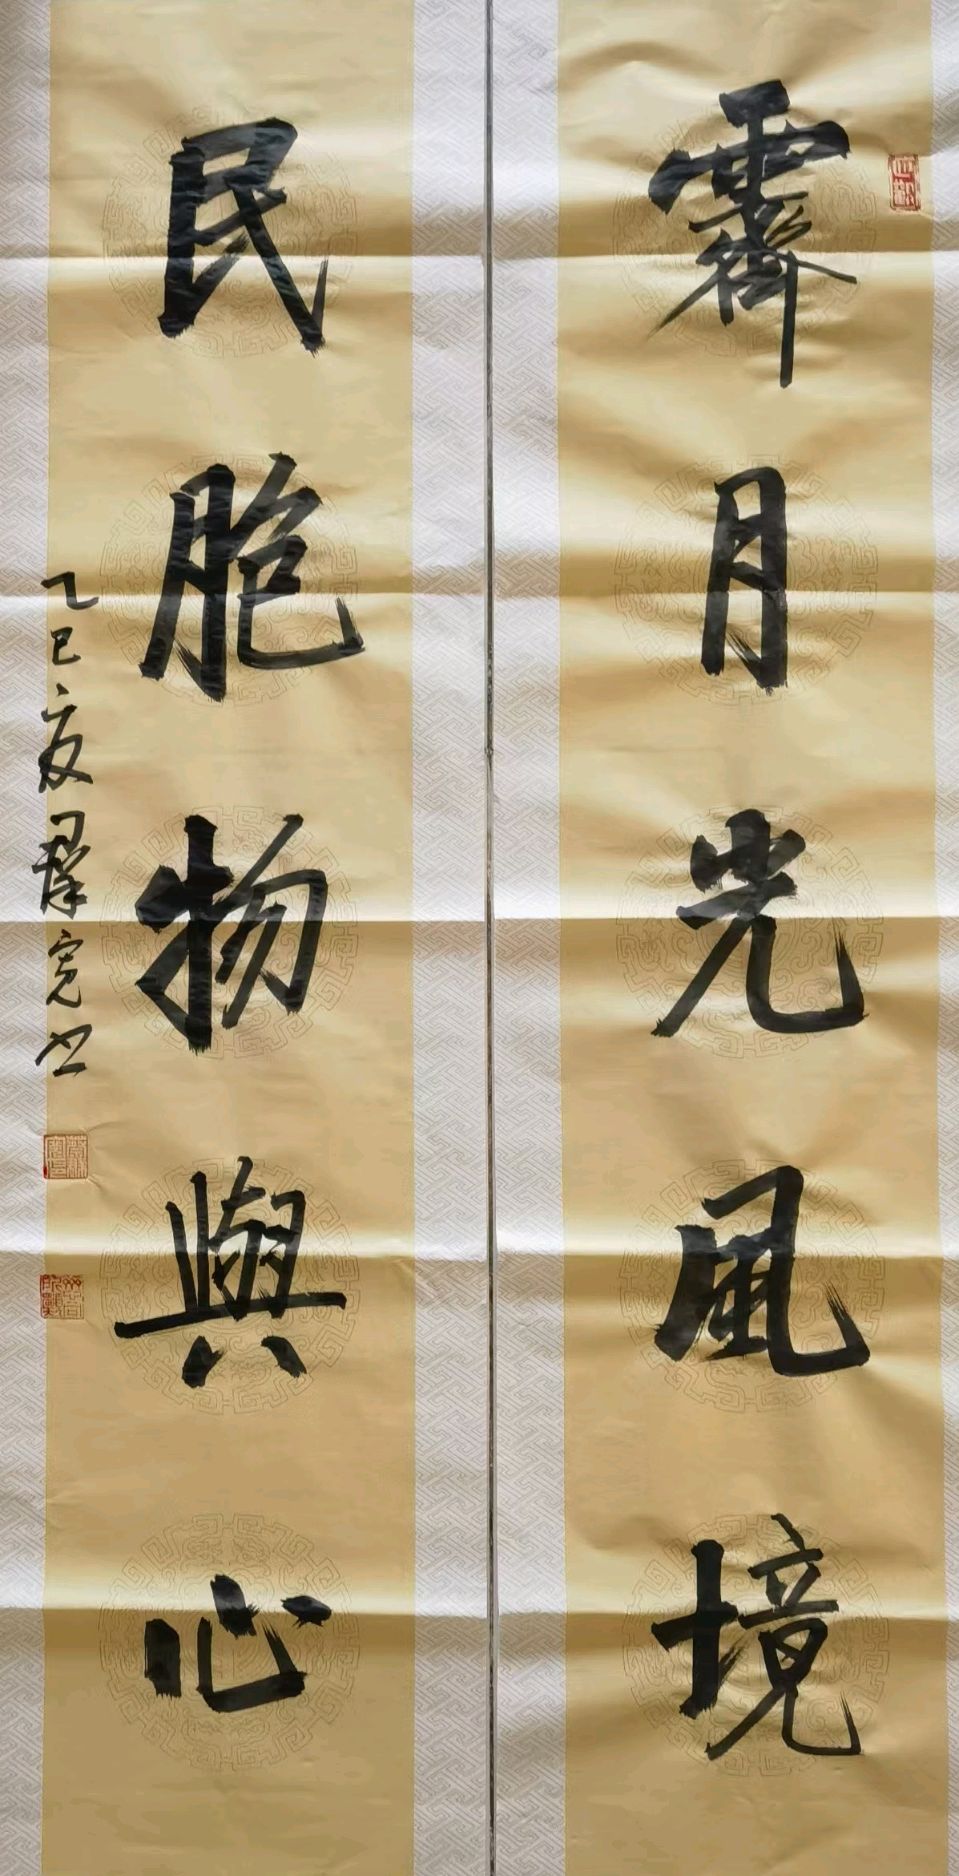 霽月光風境
民胞物與心
乙巳夏群寬書